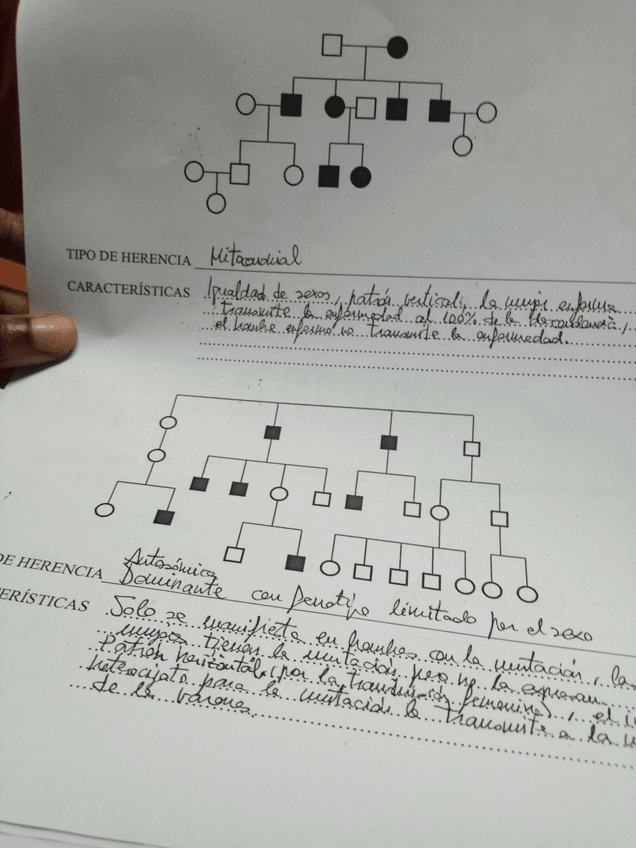 TIPO DE HERENCIA Mitocondrial
CARACTERÍSTICAS Igualdad de sexos, patrón vertical, la mujer enferma
transmite la enfermedad al 100% de la descendencia,
el hombre enfermo no transmite la enfermedad.
DE HERENCIA Autosómica
Dominante con fenotipo limitado por el sexo
ERÍSTICAS Solo se manifiesta en hombres con la mutación, la
mujeres tienen la mutación pero no la expresan,
Patrón horizontal (por la transmisión femenina), el
heterocigoto para la mutación la transmite a la
de los varones.